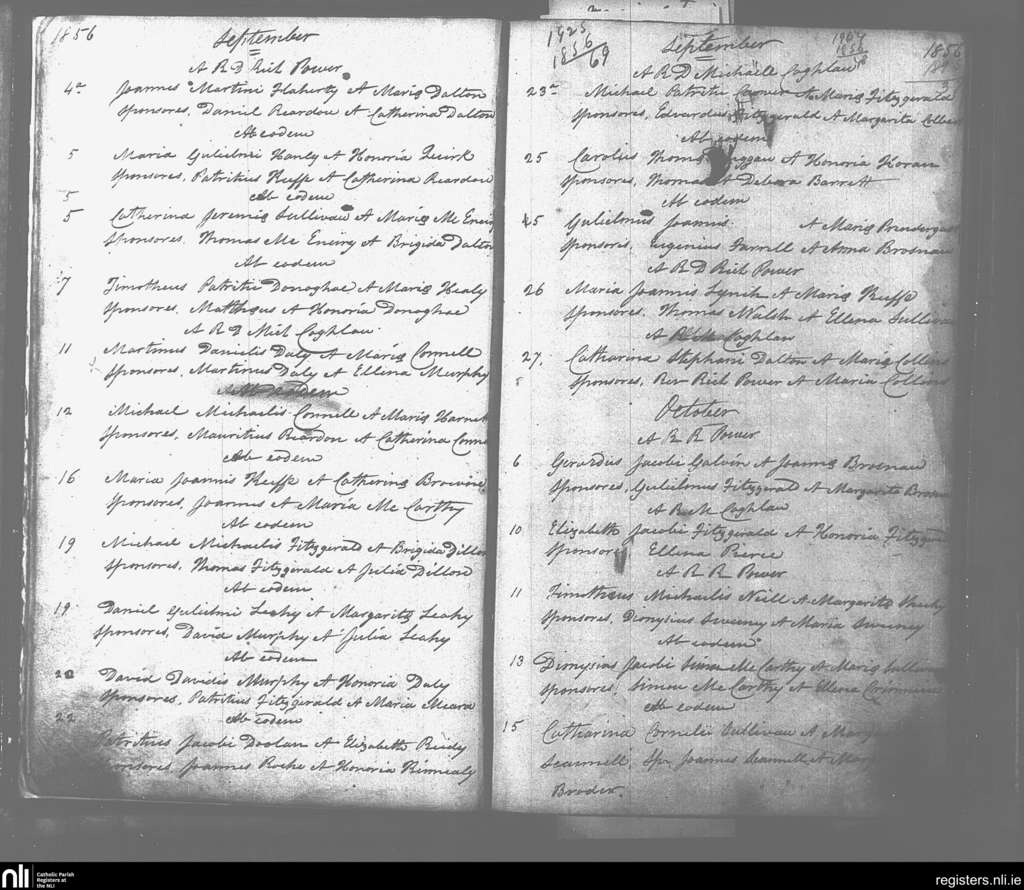 1856
September
A R D Rich Power
4a Joannes Martini Flaherty et Maria Dalton
Sponsores, Daniel Reardon et Catherina Dalton
Ab eodem
5 Maria Gulielmi Hanly et Honoria Quirk
Sponsores, Patritius Keeffe et Catherina Reardon
5 Ab eodem
5 Catherina Jeremiæ Sullivan et Maria Mc
Sponsores. Thomas Mc et Brigida Dalton
Ab eodem
7 Timotheus Patritii Donoghoe et Maria Healy
Sponsores. Matthæus et Honoria Donoghoe
A R D Mich Coghlan
11 Martinus Danielis Daly et Maria Connell
Sponsores, Martinus Daly et Ellena Murphy
Ab eodem
12 Michael Michaelis Connell et Maria
Sponsores, Mauritius Reardon et Catherina
Ab eodem
16 Maria Joannis Keeffe et Catherina
Sponsores, Joannes et Maria Mc Carthy
Ab eodem
19 Michael Michaelis Fitzgerald et Brigida Dillon
Sponsores, Thomas Fitzgerald et Julia Dillon
Ab eodem
19 Daniel Gulielmi Leahy et Margarita Leahy
Sponsores, David Murphy et Julia Leahy
Ab eodem
20 David Davidis Murphy et Honoria Daly
Sponsores, Patritius Fitzgerald et Maria Meara
22 Ab eodem
Patritius Jacobi Doolan et Elizabeth Reidy
Sponsores, Joannes Roche et Honoria
1925
1856
69
September
1904
1856
1856
A R D Michaele Coghlan
23a Michael Patritii et Maria Fitzgerald
Sponsores, Edvardus Fitzgerald et Margarita
Ab eodem
25 Carolus et Honoria Horan
Sponsores, Thomas et Debora Barrett
Ab eodem
25 Gulielmus Joannis et Maria
Sponsores, Eugenius Farrell et Anna Brosnan
A R D Rich Power
26 Maria Joannis Lynch et Maria Keeffe
Sponsores, Thomas Walsh et Ellena Sullivan
A Coghlan
27. Catharina Stephani Dalton et Maria Collins
Sponsores, Rev Rich Power et Maria Collins
October
A R R Power
6 Gerardus Jacobi Galvin et Joanna Brosnan
Sponsores, Gulielmus Fitzgerald et Margarita
A R M Coghlan
10 Elizabeth Jacobi Fitzgerald et Honoria
Sponsores Ellena Pierce
A R R Power
11 Timotheus Michaelis Neill et Margarita
Sponsores, Dionysius Sweeney et Maria Sweeney
Ab eodem
13 Dionysius Jacobi Mc Carthy et Maria
Sponsores, Simon Mc Carthy et Ellena
Ab eodem
15 Catharina Cornelii Sullivan et
Scannell, Spr Joannes Scannell et
Broder.
nli
Catholic Parish
Registers at
the NLI
registers.nli.ie